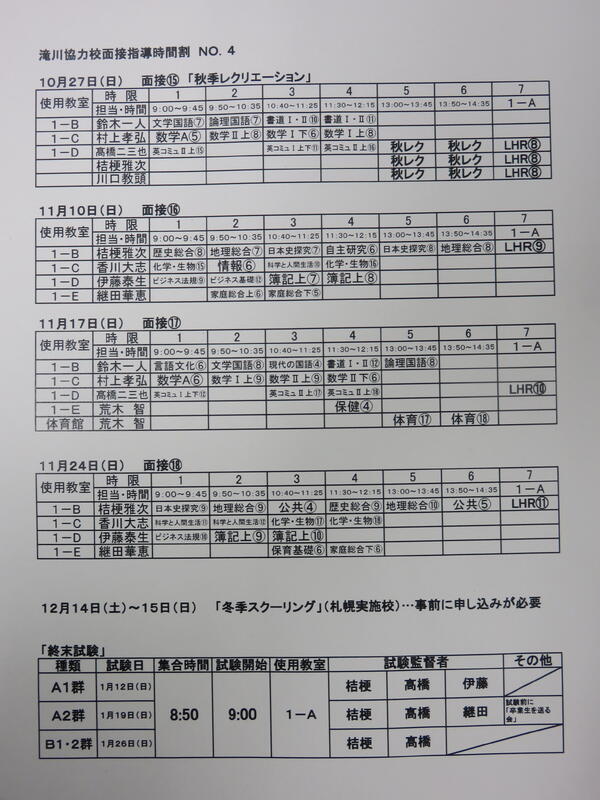 滝川協力校面接指導時間割 NO.4
10月27日(日) 面接⑮ 「秋季レクリエーション」
使用教室 時限 1 2 3 4 5 6 7
担当・時間 9:00～9:45 9:50～10:35 10:40～11:25 11:30～12:15 13:00～13:45 13:50～14:35 1－A
1－B 鈴木一人 文学国語⑦ 論理国語⑦ 書道Ⅰ・Ⅱ⑩ 書道Ⅰ・Ⅱ⑪
1－C 村上孝弘 数学A⑤ 数学Ⅱ上⑧ 数学Ⅰ下⑥ 数学Ⅰ上⑧
1－D 髙橋二三也 英コミュⅡ上⑮ 英コミュⅠ上下⑪ 英コミュⅡ上⑯ 秋レク 秋レク LHR⑧
桔梗雅次 秋レク 秋レク LHR⑧
川口教頭 秋レク 秋レク LHR⑧
11月10日(日) 面接⑯
使用教室 時限 1 2 3 4 5 6 7
担当・時間 9:00～9:45 9:50～10:35 10:40～11:25 11:30～12:15 13:00～13:45 13:50～14:35 1－A
1－B 桔梗雅次 歴史総合⑧ 地理総合⑦ 日本史探究⑦ 自主研究⑥ 日本史探究⑧ 地理総合⑧ LHR⑨
1－C 香川大志 化学・生物⑮ 情報⑥ 科学と人間生活⑩ 化学・生物⑯
1－D 伊藤泰生 ビジネス法規⑨ ビジネス基礎⑫ 簿記上⑦ 簿記上⑧
1－E 継田華恵 家庭総合上⑥ 家庭総合下⑤
11月17日(日) 面接⑰
使用教室 時限 1 2 3 4 5 6 7
担当・時間 9:00～9:45 9:50～10:35 10:40～11:25 11:30～12:15 13:00～13:45 13:50～14:35 1－A
1－B 鈴木一人 言語文化⑥ 文学国語⑧ 現代の国語④ 書道Ⅰ・Ⅱ⑫ 論理国語⑧
1－C 村上孝弘 数学A⑥ 数学Ⅰ上⑨ 数学Ⅱ上⑨ 数学Ⅱ下⑥
1－D 髙橋二三也 英コミュⅠ上下⑫ 英コミュⅡ上⑰ 英コミュⅡ上⑱ LHR⑩
1－E 荒木 智 保健④
体育館 荒木 智 体育⑰ 体育⑱
11月24日(日) 面接⑱
使用教室 時限 1 2 3 4 5 6 7
担当・時間 9:00～9:45 9:50～10:35 10:40～11:25 11:30～12:15 13:00～13:45 13:50～14:35 1－A
1－B 桔梗雅次 日本史探究⑨ 地理総合⑨ 公共④ 歴史総合⑨ 地理総合⑩ 公共⑤ LHR⑪
1－C 香川大志 科学と人間生活⑪ 科学と人間生活⑫ 化学・生物⑰ 化学・生物⑱
1－D 伊藤泰生 ビジネス法規⑩ 簿記上⑨ 簿記上⑩
1－E 継田華恵 保育基礎⑥ 家庭総合下⑥
12月14日(土)～15日(日) 「冬季スクーリング」(札幌実施校)…事前に申し込みが必要
「終末試験」
種類 試験日 集合時間 試験開始 使用教室 試験監督者 その他
A1群 1月12日(日) 桔梗 髙橋 伊藤
A2群 1月19日(日) 8:50 9:00 1－A 桔梗 髙橋 継田 試験前に「卒業生を送る会」
B1・2群 1月26日(日) 桔梗 髙橋